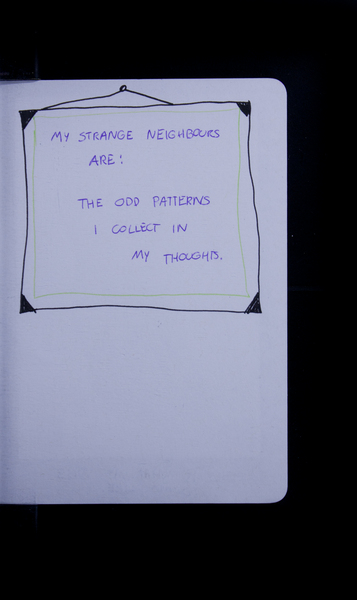 MY STRANGE NEIGHBOURS
ARE:
THE ODD PATTERNS
I COLLECT IN
MY THOUGHTS.